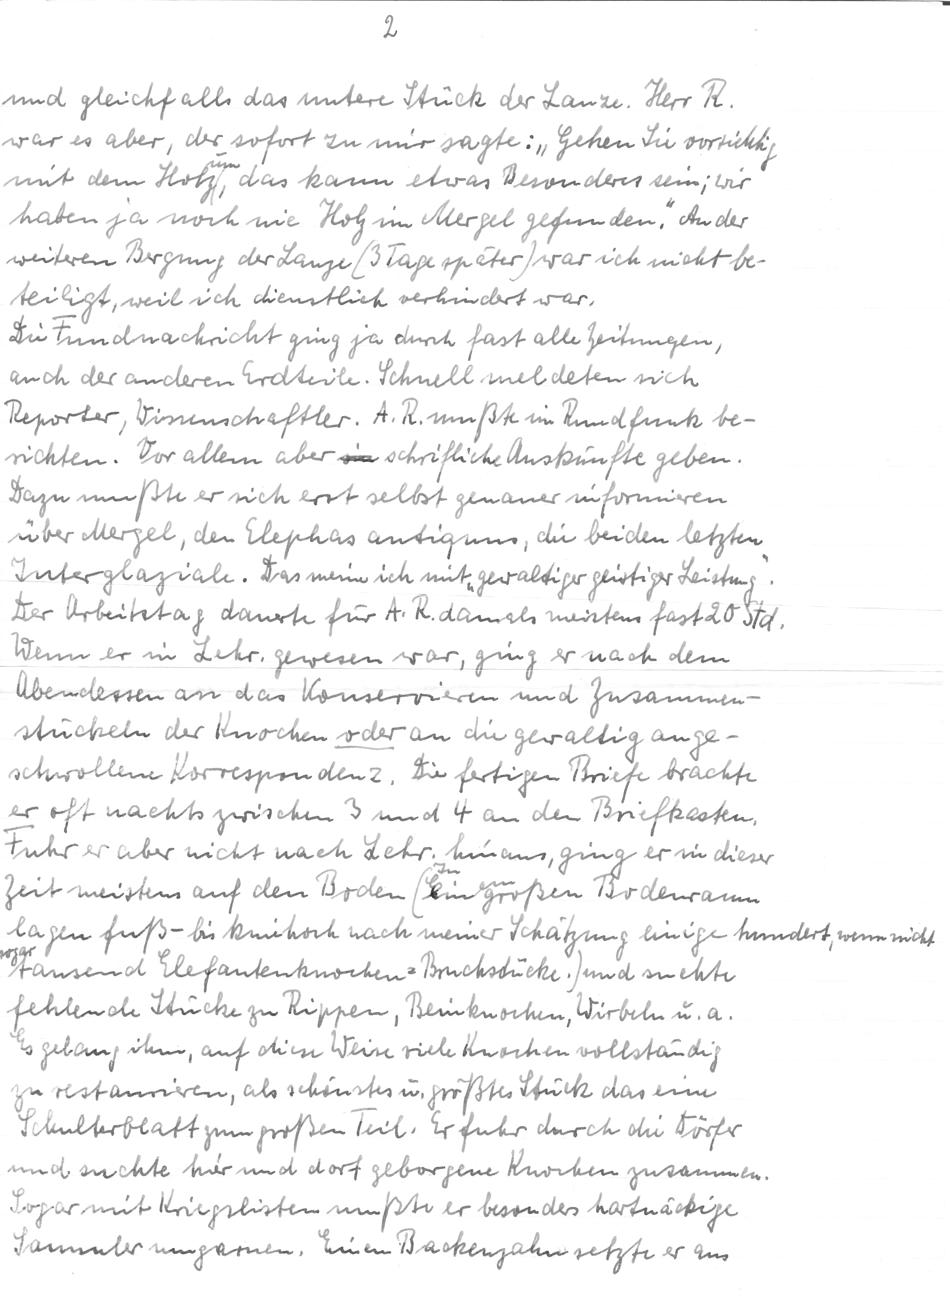 2
und gleichfalls das untere Stück der Lanze. Herr R.
war es aber, der sofort zu mir sagte: „Gehen Sie vorsichtig
mit dem Holz um, das kann etwas Besonderes sein; wir
haben ja noch nie Holz im Mergel gefunden." An der
weiteren Bergung der Lanze (3 Tage später) war ich nicht be-
teiligt, weil ich dienstlich verhindert war.
Die Fundnachricht ging ja durch fast alle Zeitungen,
auch der anderen Erdteile. Schnell meldeten sich
Reporter, Wissenschaftler. A. R. mußte im Rundfunk be-
richten. Vor allem aber schriftliche Auskünfte geben.
Dazu mußte er sich erst selbst genauer informieren
über Mergel, den Elephas antiquus, die beiden letzten
Interglaziale. Das meine ich mit „gewaltiger geistiger Leistung".
Der Arbeitstag dauerte für A. R. damals meistens fast 20 Std.
Wenn er in Lehr. gewesen war, ging er nach dem
Abendessen an das Konservieren und Zusammen-
stückeln der Knochen oder an die gewaltig ange-
schwollene Korrespondenz. Die fertigen Briefe brachte
er oft nachts zwischen 3 und 4 an den Briefkasten.
Fuhr er aber nicht nach Lehr. hinaus, ging er in dieser
Zeit meistens auf den Boden (In einem großen Bodenraum
lagen fuß- bis kniehoch nach meiner Schätzung einige hundert, wenn nicht
sogar tausend Elefantenknochen=Bruchstücke.) und suchte
fehlende Stücke zu Rippen, Beinknochen, Wirbeln u. a.
Es gelang ihm, auf diese Weise viele Knochen vollständig
zu restaurieren, als schönstes u. größtes Stück das eine
Schulterblatt zum großen Teil. Er fuhr durch die Dörfer
und suchte hier und dort geborgene Knochen zusammen.
Sogar mit Kriegslisten mußte er besonders hartnäckige
Sammler umgarnen. Einen Backenzahn setzte er aus